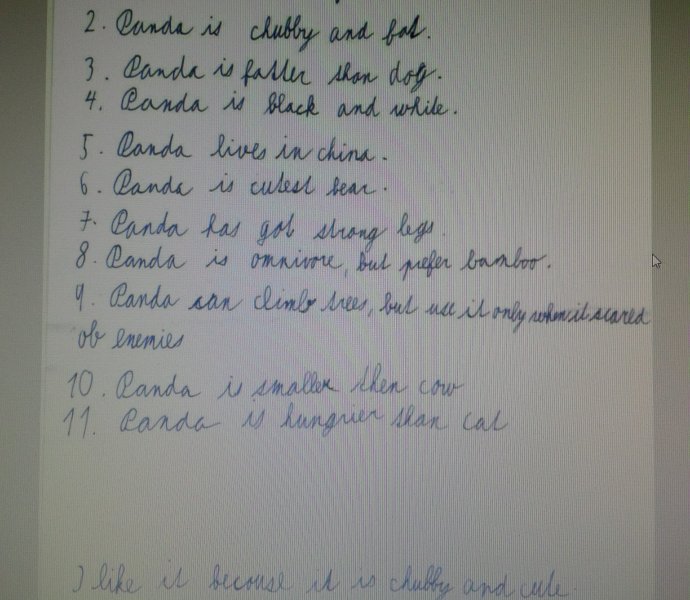 2. Panda is chubby and fat.
3. Panda is fatter than dog.
4. Panda is black and white.
5. Panda lives in china.
6. Panda is cutest bear.
7. Panda has got strong legs.
8. Panda is omnivore, but prefer bamboo.
9. Panda can climb trees, but use it only when it scared
of enemies
10. Panda is smaller then cow
11. Panda is hungrier than cat
I like it becouse it is chubby and cute.